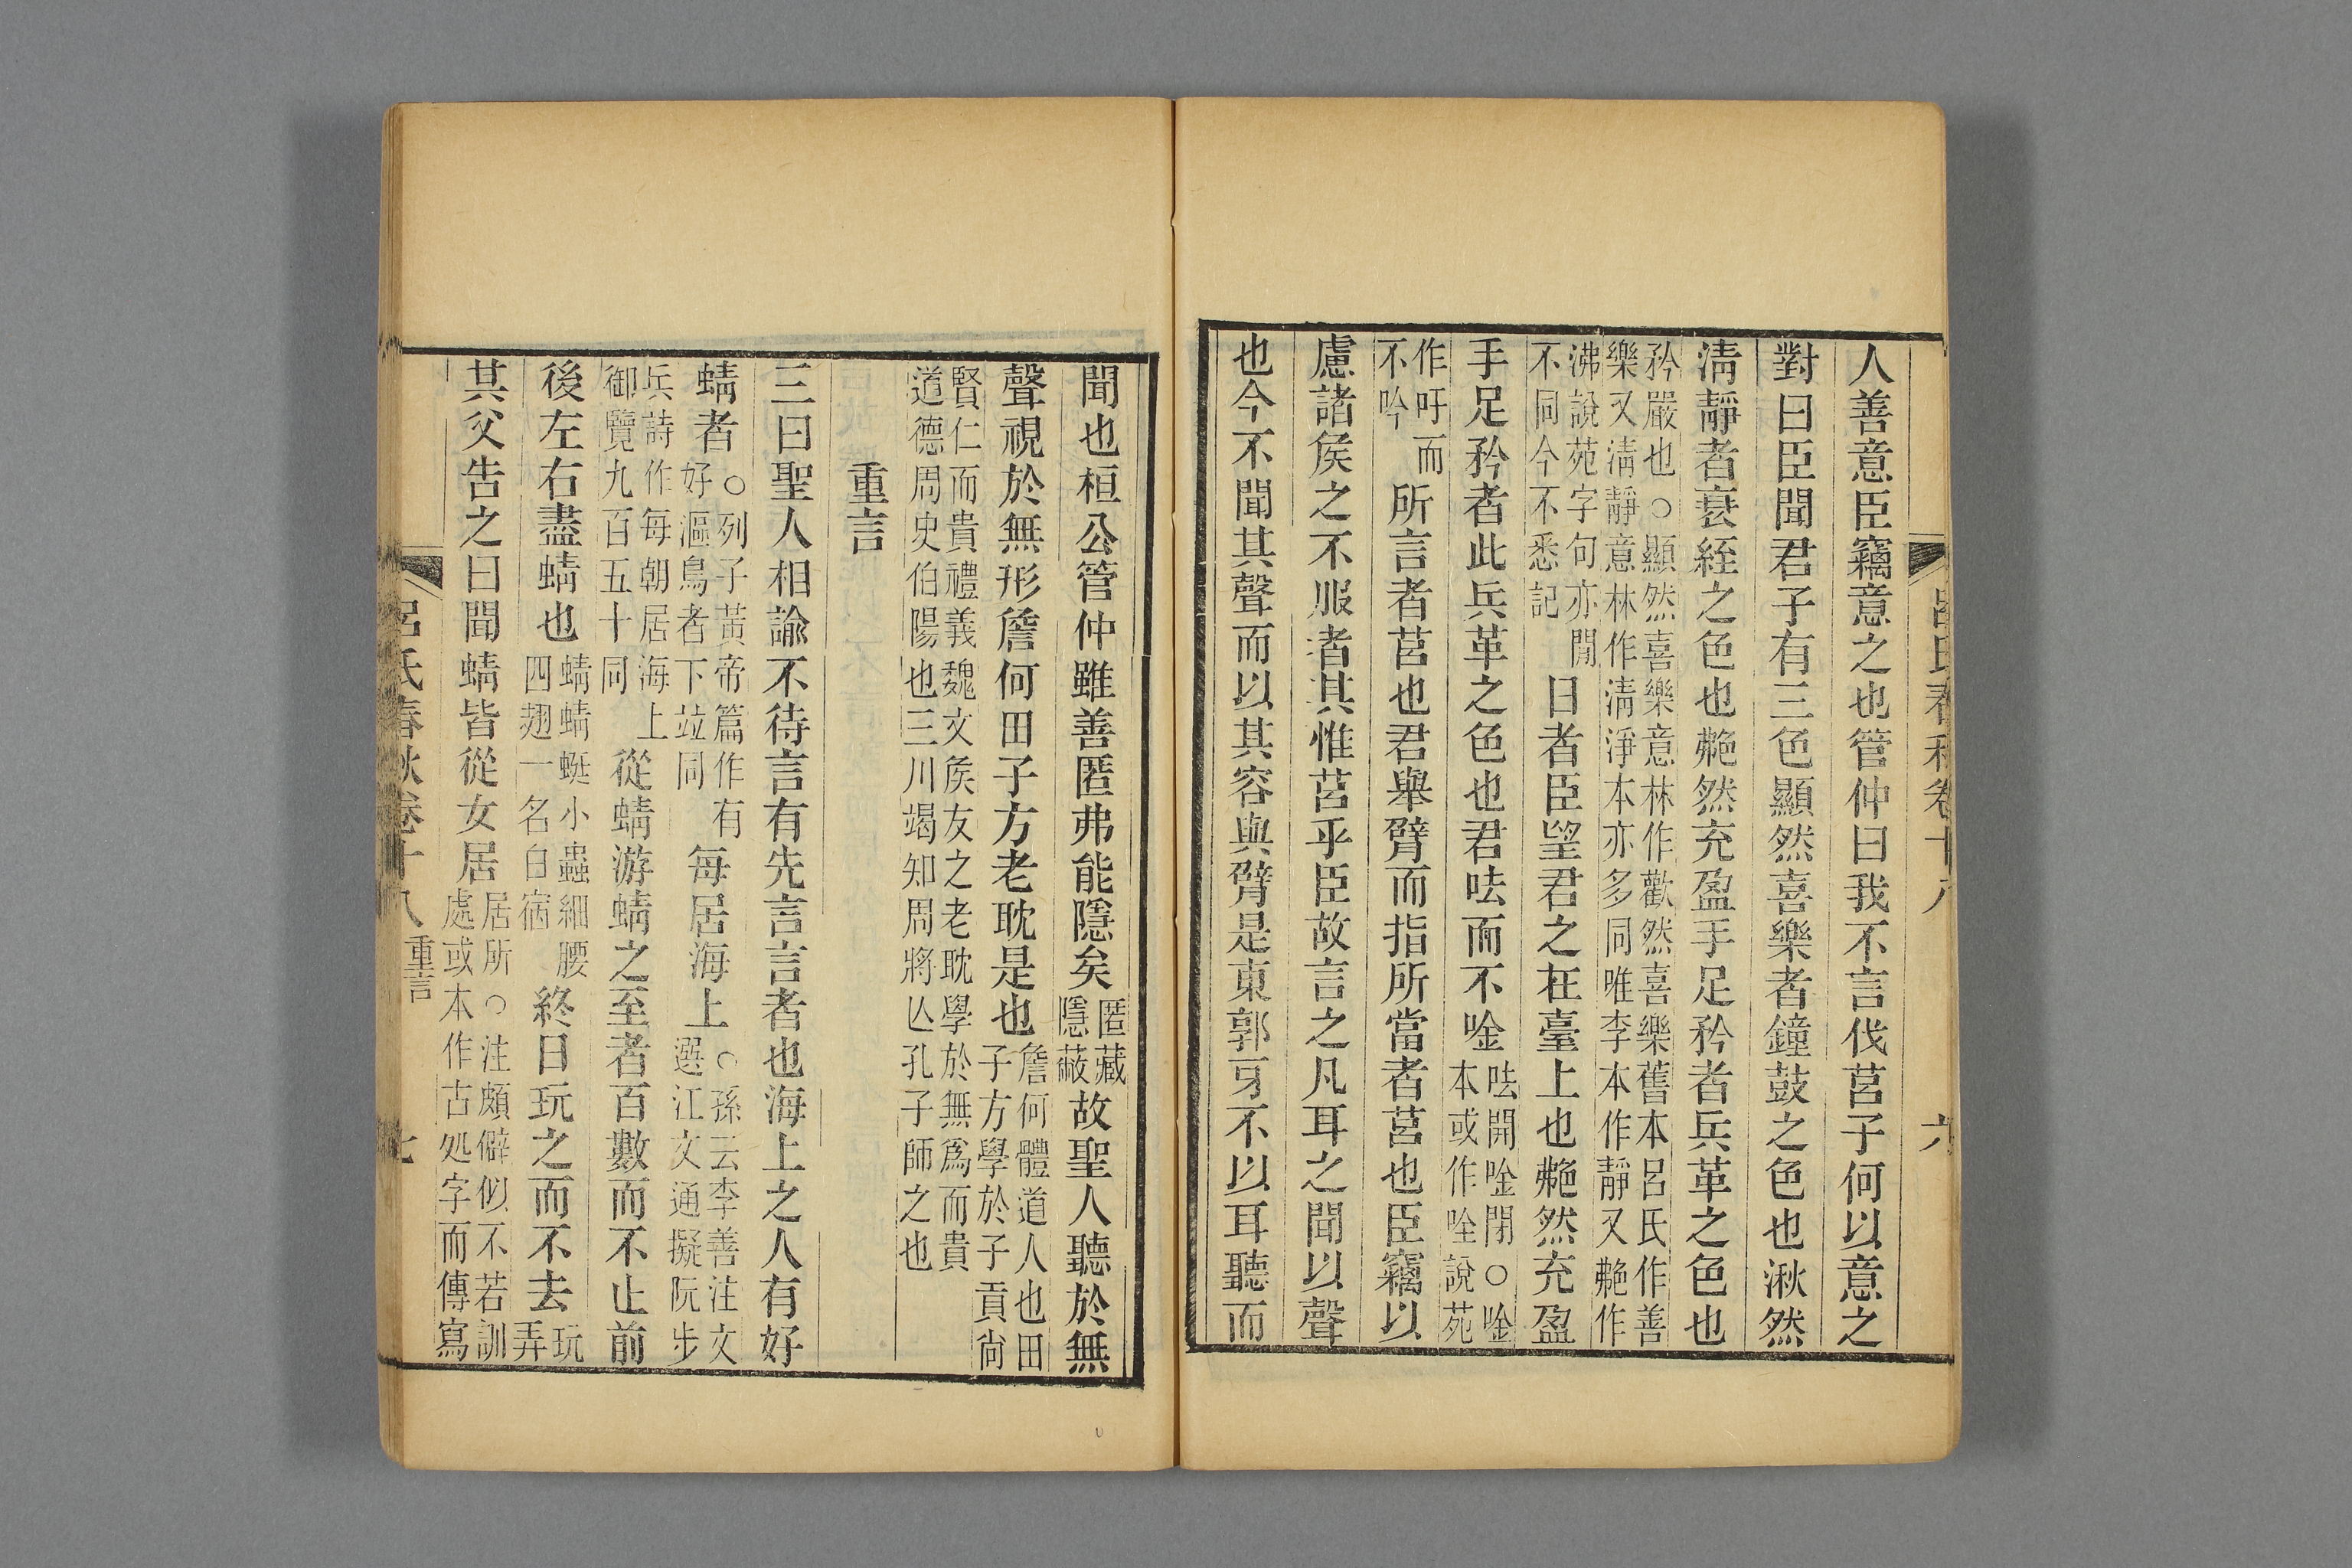 呂氏春秋卷十八 六
人善意臣竊意之也管仲曰我不言伐莒子何以意之
對曰臣聞君子有三色顯然喜樂者鐘鼓之色也湫然
清靜者衰絰之色也艴然充盈手足矜者兵革之色也
矜嚴也○顯然喜樂意林作歡然喜樂舊本呂氏作善
樂又清靜意林作清淨本亦多同唯李本作靜又艴作
沸說苑字句亦閒不同今不悉記日者臣望君之在臺上也艴然充盈
手足矜者此兵革之色也君呿而不唫呿開唫閉○唫本或作唑說苑
作吁而不吟所言者莒也君舉臂而指所當者莒也臣竊以
慮諸侯之不服者其惟莒乎臣故言之凡耳之聞以聲
也今不聞其聲而以其容與臂是東郭牙不以耳聽而
聞也桓公管仲雖善匿弗能隱矣匿藏隱蔽故聖人聽於無
聲視於無形詹何田子方老耽是也詹何體道人也田子方學於子貢尙
賢仁而貴禮義魏文侯友之老耽學於無爲而貴
道德周史伯陽也三川竭知周將亾孔子師之也
重言
三曰聖人相諭不待言有先言言者也海上之人有好
蜻者○列子黃帝篇作有好漚鳥者下竝同每居海上○孫云李善注文選江文通擬阮步
兵詩作每朝居海上御覽九百五十同從蜻游蜻之至者百數而不止前
後左右盡蜻也蜻蜻蜓小蟲細腰四翅一名白宿終日玩之而不去玩弄
其父告之曰聞蜻皆從女居居所○注頗僻似不若訓處或本作古処字而傳寫
呂氏春秋卷十八 重言 七